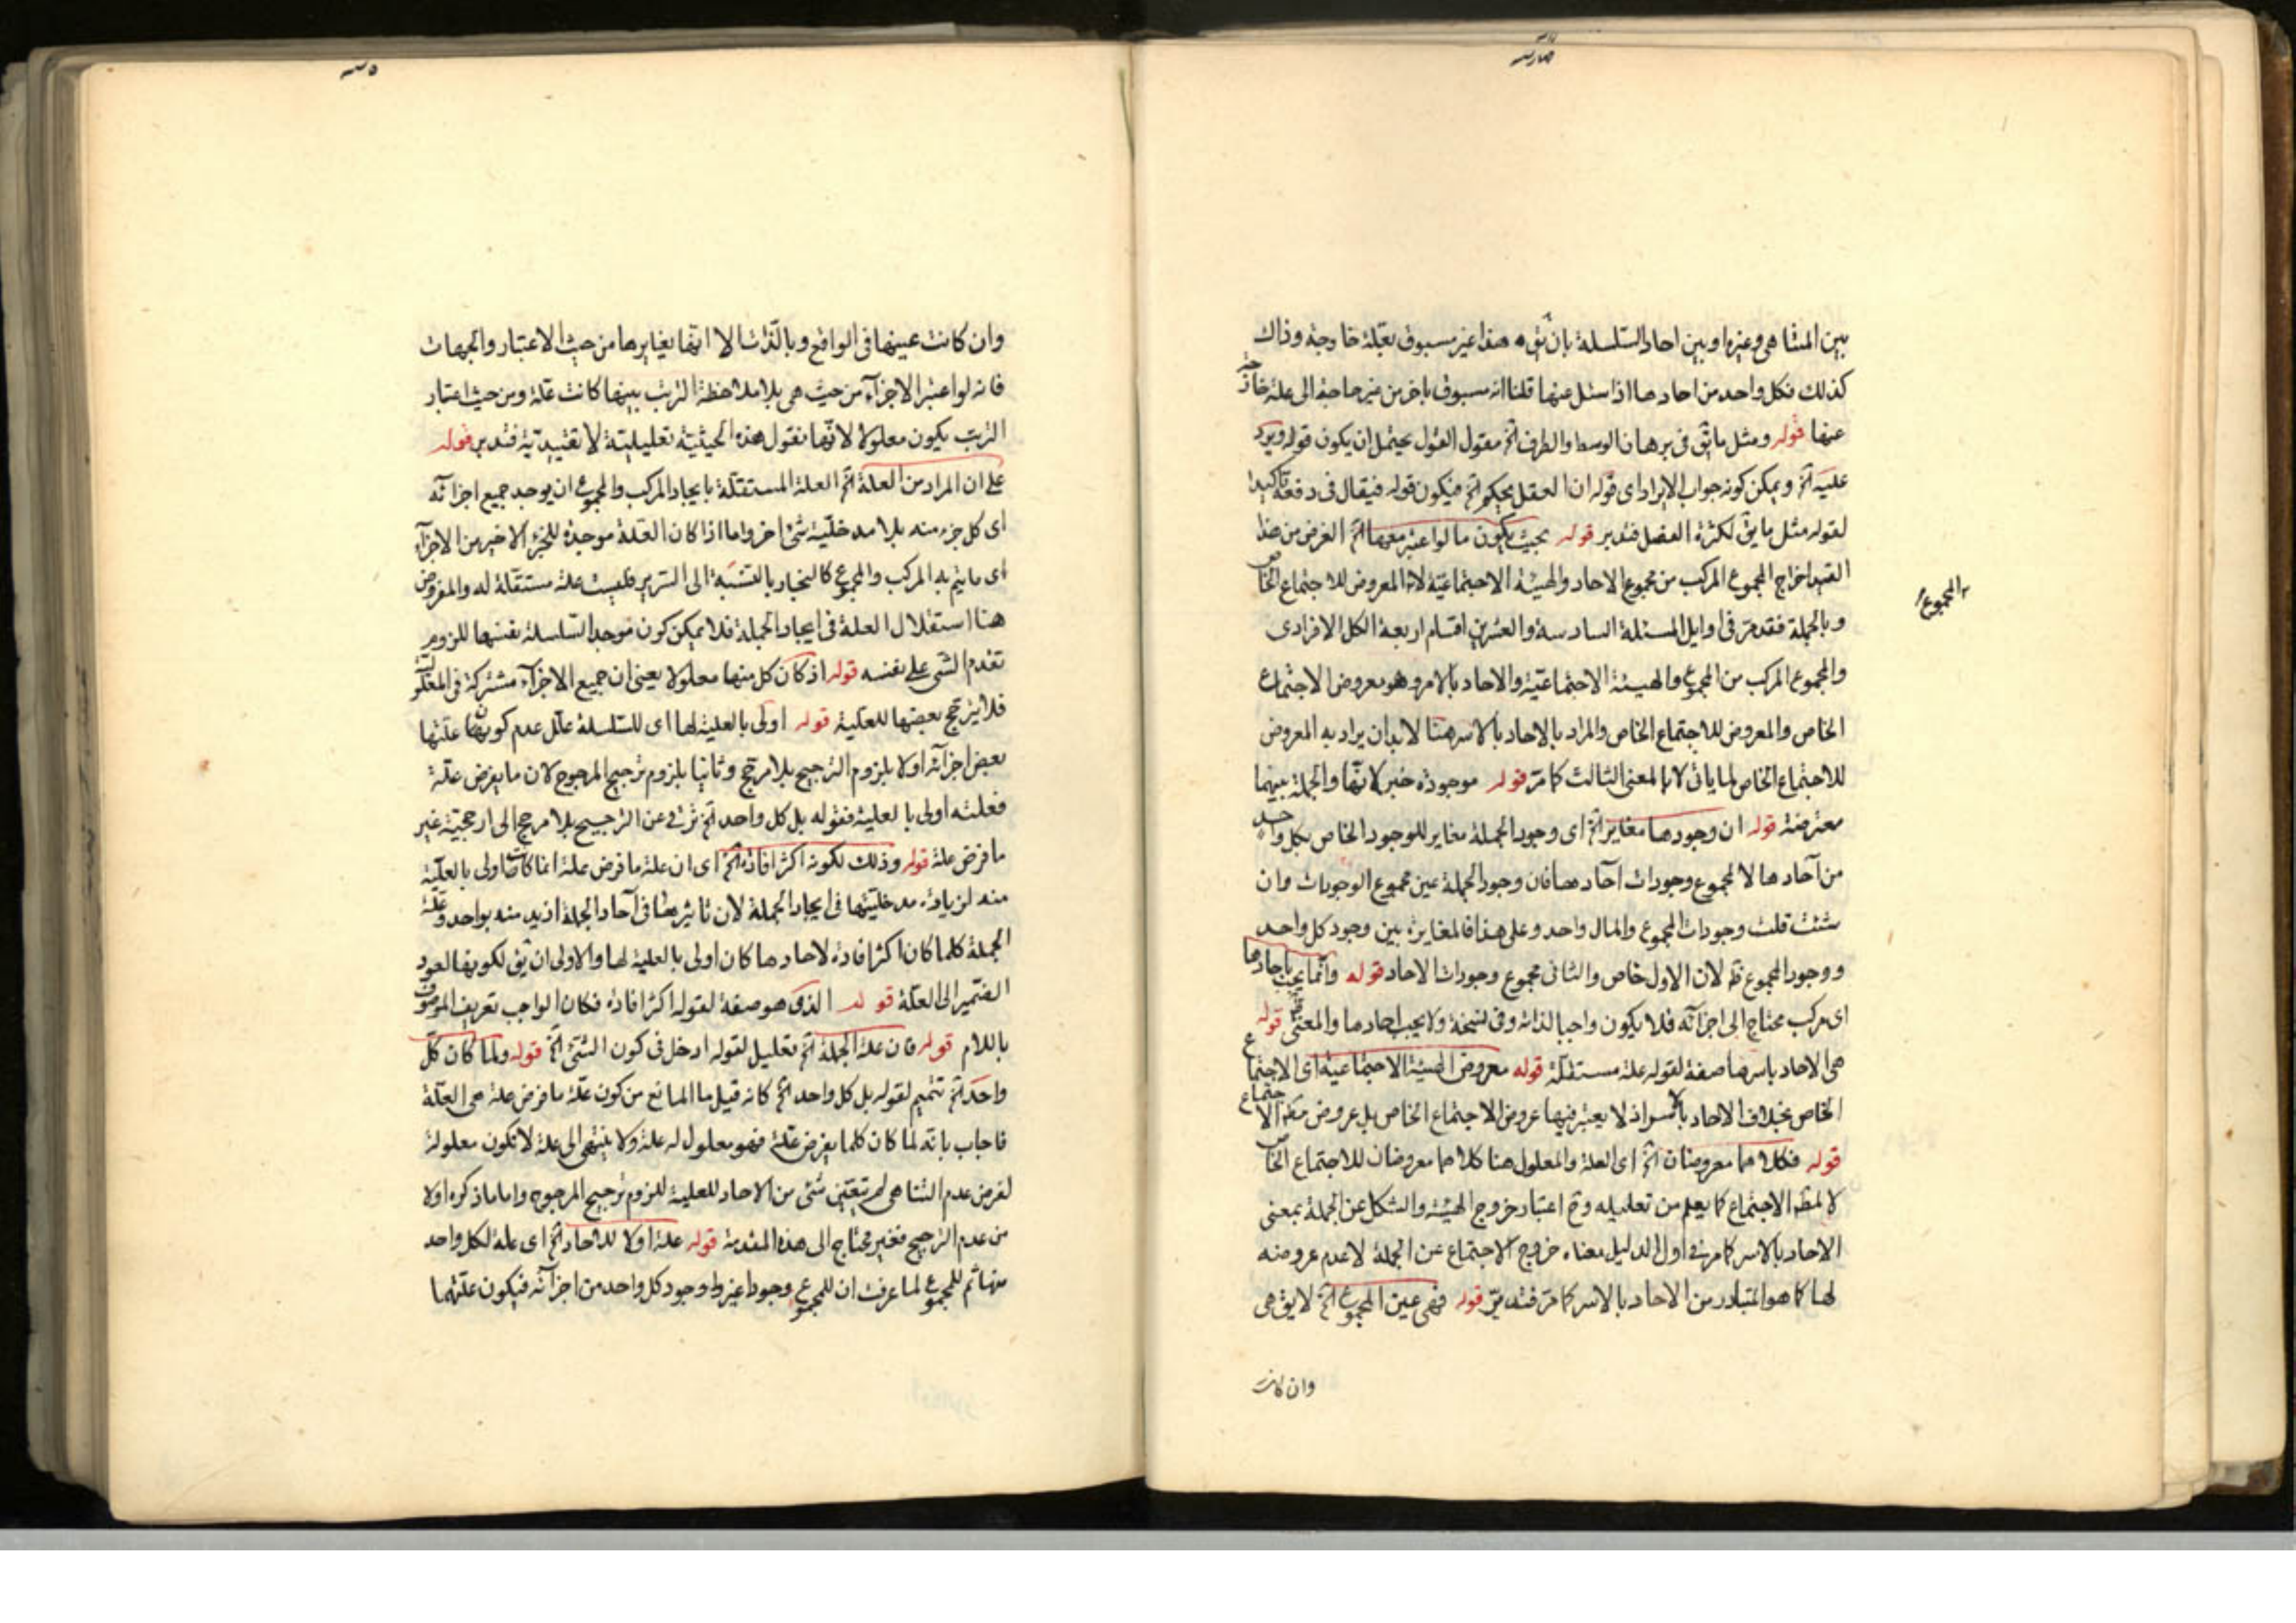 بين المتناهى وغيره او بين احاد السلسلة بان يق هذا غير مسبوق بعلة خارجة وذاك
كذلك فكل واحد من احادها اذا سئل عنها قلنا انه مسبوق باخر من غير حاجة الى علة خارجة
عنها قوله ومثل ما يق فى برهان الوسط والطرف الخ مقول القول يحتمل ان يكون قوله ويرد
عليه الخ ويمكن كونه جواب الايراد اى قوله ان العقل يحكم الخ فيكون قوله فيقال فى دفعه تاكيدا
لقوله مثل ما يق لكثرة الفصل فتدبر قوله بحيث يكون ما لو اعتبر معها الخ الغرض من هذا
القيد اخراج المجموع المركب من مجموع الاحاد والهيئة الاجتماعية لا المعروض للاجتماع الخاص
المجموع
وبالجملة فقد مر فى اوايل المسئلة السادسة والعشرين اقسام اربعة الكل الافرادى
والمجموع المركب من المجموع والهيئة الاجتماعية والاحاد بالاسر وهو معروض الاجتماع
الخاص والمعروض للاجتماع الخاص والمراد بالاحاد بالاسر هنا لا بد ان يراد به المعروض
للاجتماع الخاص لما ياتى لا بالمعنى الثالث كما مر قوله موجودة خبر لانها والجملة بينهما
معترضة قوله ان وجودها مغاير الخ اى وجود الجملة مغاير للوجود الخاص بكل واحد
من آحادها لا لمجموع وجودات آحادها فان وجود الجملة عين مجموع الوجودات وان
شئت قلت وجودات المجموع والمال واحد وعلى هذا فالمغايرة بين وجود كل واحد
ووجود المجموع ظ لان الاول خاص والثانى مجموع وجودات الاحاد قوله وانما يجب باحادها
اى مركب محتاج الى اجزآئه فلا يكون واجبا لذاته وفى نسخة ولا يجب احادها والمعنى قوله
هى الاحاد باسرها صفة لقوله علة مستقلة قوله معروض الهيئة الاجتماعية اى الاجتماع
الخاص بخلاف الاحاد بالاسر اذ لا يعتبر فيها عروض الاجتماع الخاص بل عروض مطلق الاجتماع
قوله فكلاهما معروضان الخ اى العلة والمعلول هنا كلاهما معروضان للاجتماع الخاص
لا لمطلق الاجتماع كما يعلم من تعليله وقد اعتبار خروج الهيئة والشكل عن الجملة بمعنى
الاحاد بالاسر كما مر فى اول الدليل معناه خروج الاجتماع عن الجملة لا عدم عروضه
لها كما هو المتبادر من الاحاد بالاسر كما مر فتدبر قوله فهى عين المجموع الخ لا يق هى
وان كانت
وان كانت عينها فى الواقع وبالذات الا انها تغايرها من حيث الاعتبار والجهات
فانه لو اعتبر الاجزآء من حيث هى بلا ملاحظة الترتب بينها كانت علة ومن حيث اعتبار
الترتب يكون معلولا لانها نقول هذه الحيثية تعليلية لا تقييدية فتدبر قوله
على ان المراد من العلة الخ العلة المستقلة بايجاد المركب والمجموع ان يوجد جميع اجزائه
اى كل جزء منه بلا مدخلية شئ اخر واما اذا كان العلة موجدة للجزء الاخير من الاجزآء
اى ما يتم به المركب والمجموع كالنجار بالنسبة الى السرير فليست علة مستقلة له والمفروض
هنا استقلال العلة فى ايجاد الجملة فلا يمكن كون موجد السلسلة نفسها للزوم
تقدم الشى على نفسه قوله اذ كان كل منها معلولا يعنى ان جميع الاجزآء مشتركة فى المعلولية
فلا يترجح بعضها للعلية قوله اولى بالعلية لها اى للسلسلة علل عدم كون علتها
بعض اجزآئه اولا بلزوم الترجيح بلا مرجح وثانيا بلزوم ترجيح المرجوح لان ما يفرض علة
فعلته اولى بالعلية فقوله بل كل واحد الخ ترقى عن الترجيح بلا مرجح الى ارجحية غير
ما فرض علة قوله وذلك لكونه اكثر افادة الخ اى ان علة ما فرض علة انما كانت اولى بالعلية
منه لزيادة مدخليتها فى ايجاد الجملة لان تاثيرها فى آحاد الجملة ازيد منه بواحد وعلة
الجملة كلما كان اكثر افادة لاحادها كان اولى بالعلية لها والاولى ان يق لكونها لعود
الضمير الى العلة قوله الذى هو صفة لقوله اكثر افادة فكان الواجب تعريف الموصوف
باللام قوله فان علة الجملة الخ تعليل لقوله ادخل فى كون الشئ الخ قوله ولما كان كل
واحد الخ تتميم لقوله بل كل واحد الخ كانه قيل ما المانع من كون علة ما فرض علة هى العلة
فاجاب بانه لما كان كلما يفرض علة فهو معلول له علة ولا ينتهى الى علة لا تكون معلولة
لفرض عدم التناهى لم يتعين شئ من الاحاد للعلية للزوم ترجيح المرجوح واما ما ذكره اولا
من عدم الترجيح فغير محتاج الى هذه المقدمة قوله علة اولا للاحاد الخ اى علة لكل واحد
منها ثم للمجموع لما عرفت ان للمجموع وجودا غير وجود كل واحد من اجزآئه فيكون علتهما